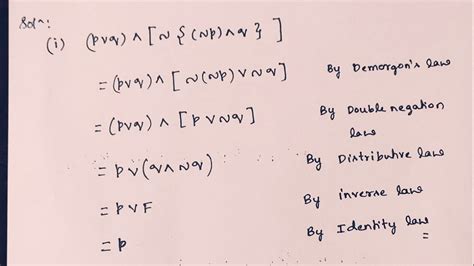 Solⁿ:
(i) (p∨q) ∧ [ ~ { (~p) ∧ q } ]
= (p∨q) ∧ [ ~(~p) ∨ ~q ] By Demorgan's law
= (p∨q) ∧ [ p ∨ ~q ] By Double negation law
= p ∨ (q ∧ ~q) By Distributive law
= p ∨ F By inverse law
= p By Identity law